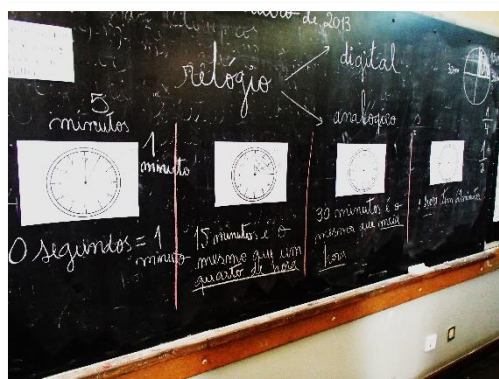 de 2013
relógio
digital
analógico
5
minutos
1
minuto
0 segundos = 1
minuto
15 minutos é o
mesmo que um
quarto de hora
30 minutos é o
mesmo que meia
hora
1 hora tem
1
4
1
2